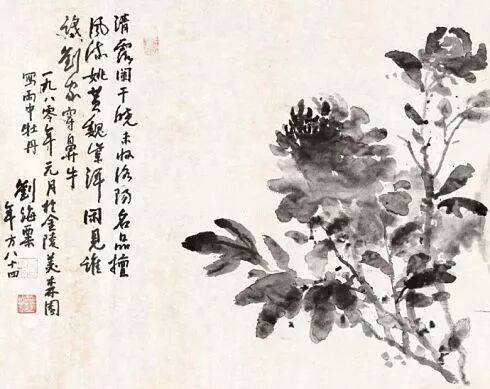 清露闌干曉未收洛陽名品擅
風流姚黃魏紫渾閑見誰
識劉家穿鼻牛
一九八〇年元月於金陵美森園
寫雨中牡丹
劉海粟
年方八十四